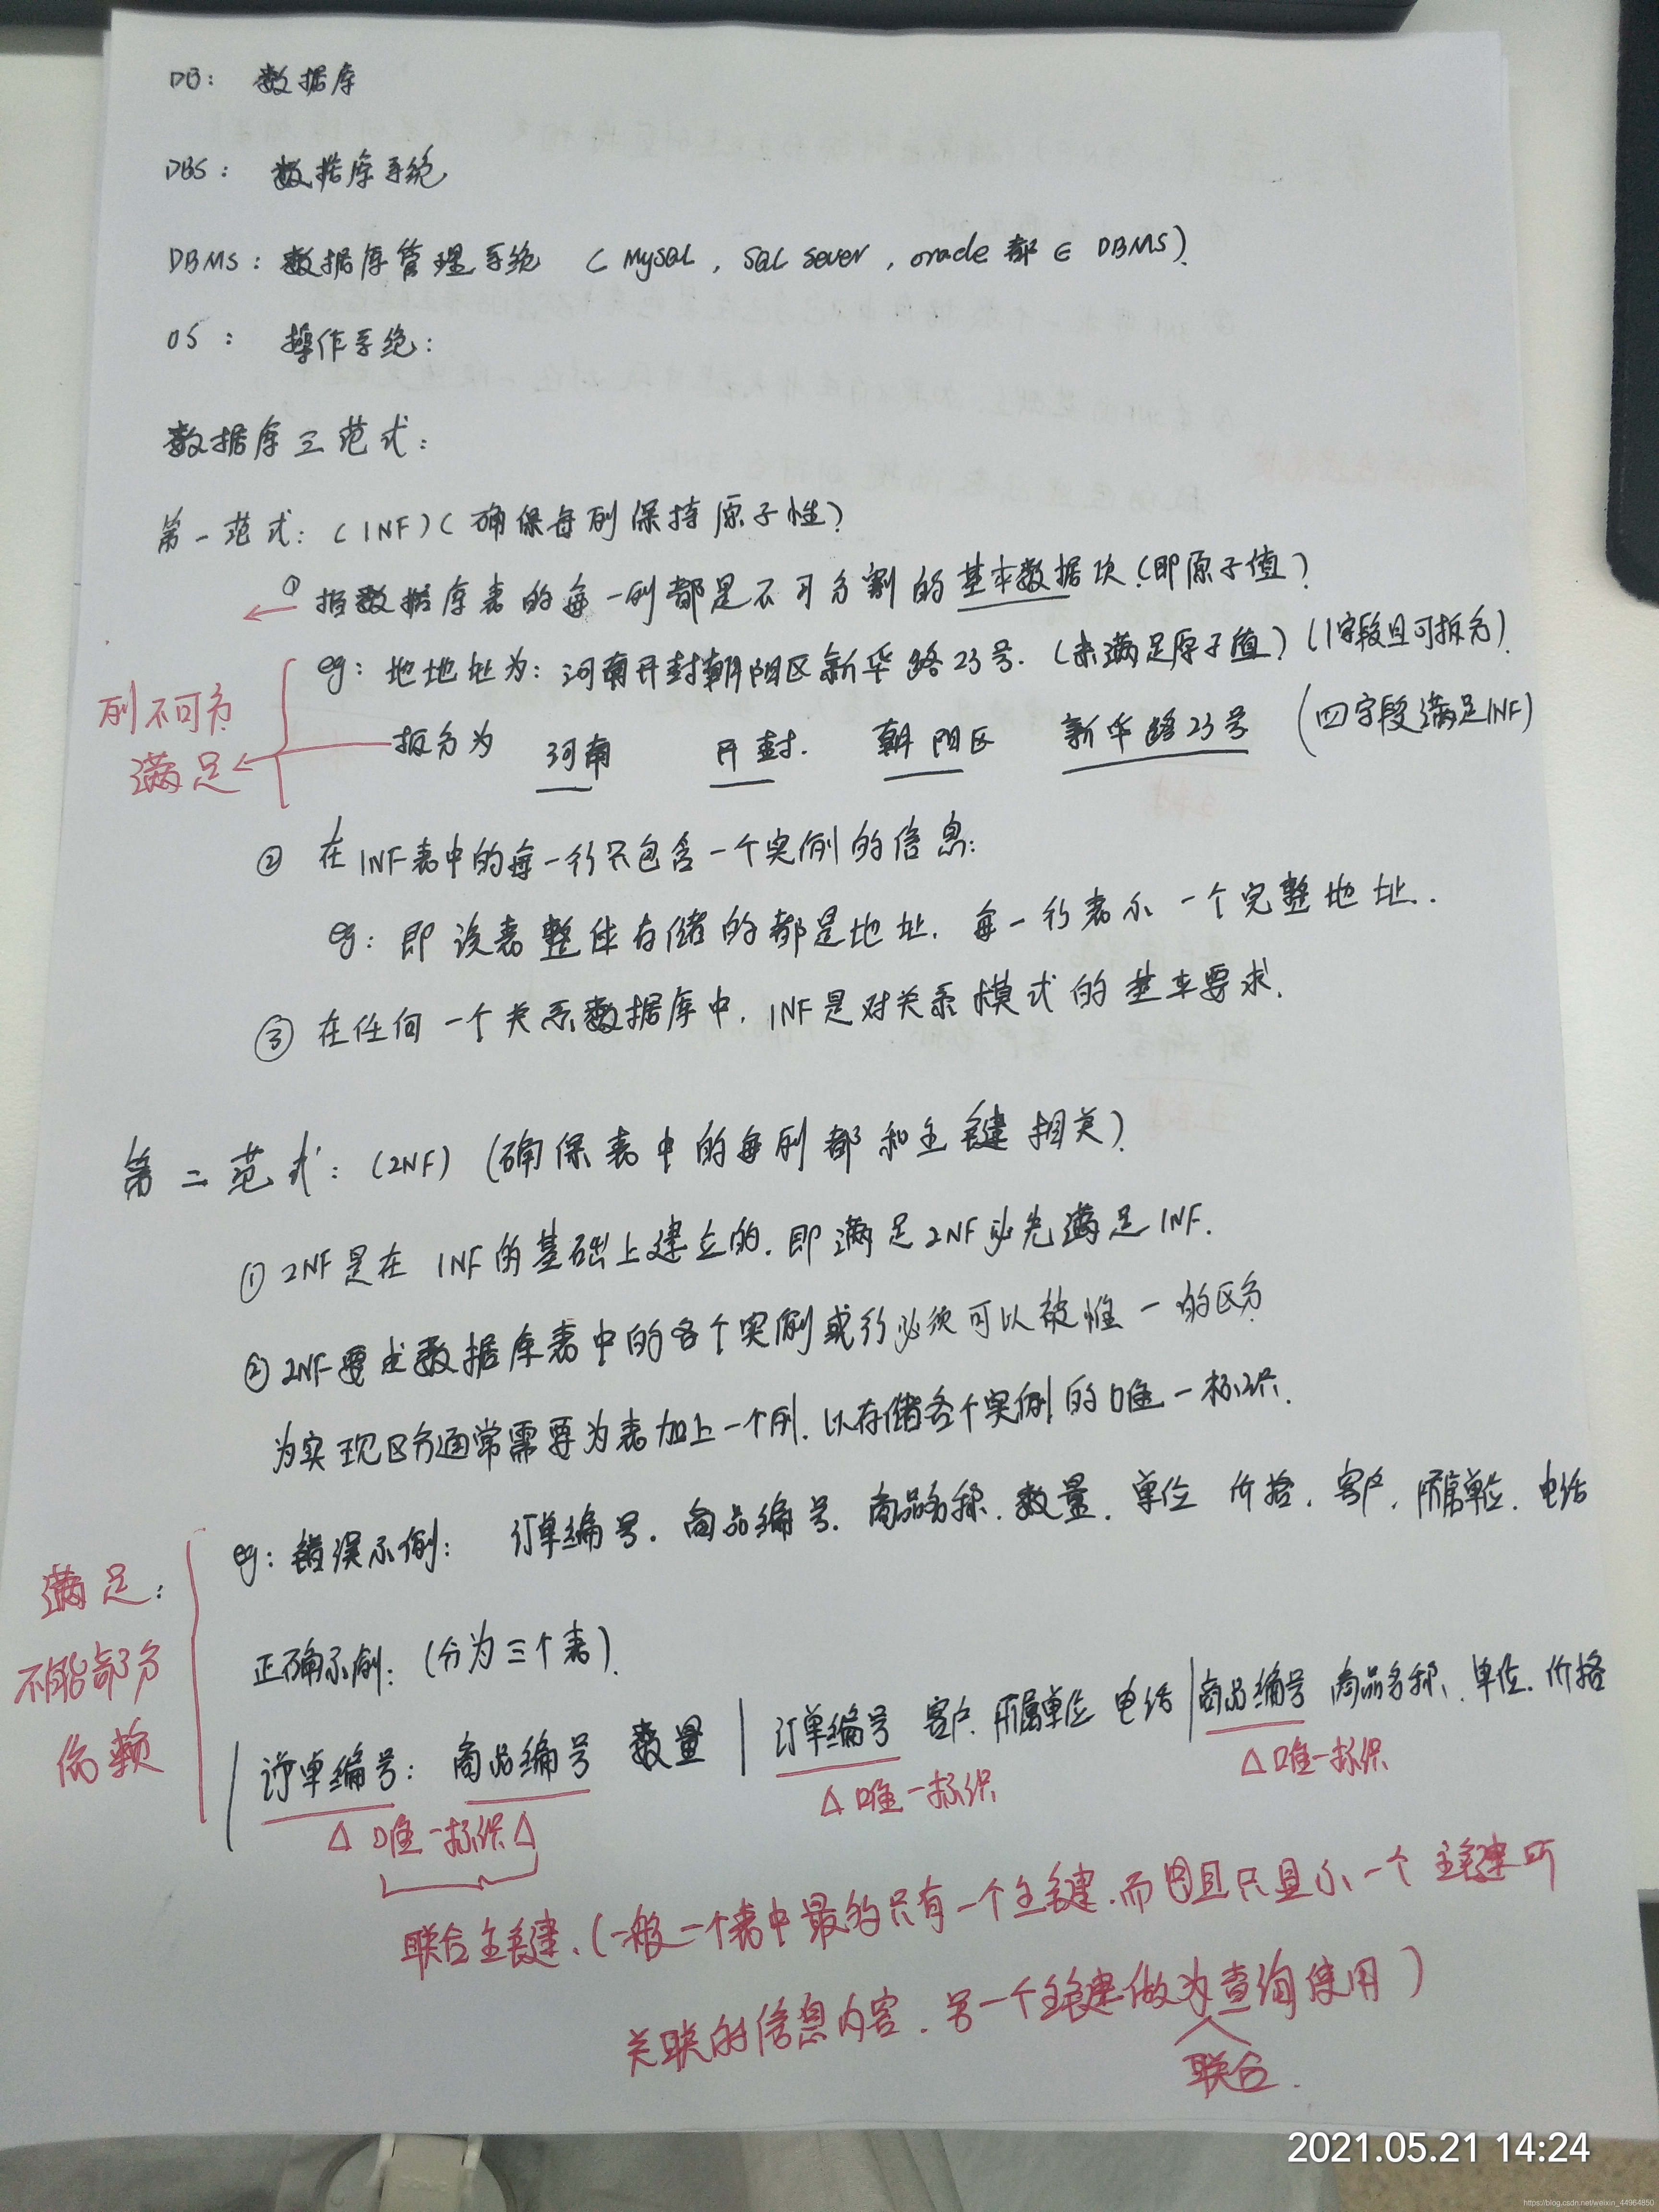 DB: 数据库
DBS: 数据库系统
DBMS: 数据库管理系统 (MySQL, SQL Sever, oracle 都 ∈ DBMS).
OS: 操作系统:
数据库三范式:
第一范式: (1NF) (确保每列保持原子性)
① 指数据库表的每一列都是不可分割的基本数据项.(即原子值)
eg: 地地址为: 河南开封朝阳区新华路23号. (未满足原子值) (1字段且可拆分).
列不可分
拆分为 河南 开封. 朝阳区 新华路23号 (四字段满足1NF)
满足
② 在1NF表中的每一行只包含一个实例的信息:
eg: 即该表整体存储的都是地址. 每一行表示一个完整地址..
③ 在任何一个关系数据库中, 1NF是对关系模式的基本要求.
第二范式: (2NF) (确保表中的每列都和主键相关).
① 2NF是在 1NF的基础上建立的. 即满足2NF必先满足1NF.
② 2NF要求数据库表中的各个实例或行必须可以被惟一的区分
为实现区分通常需要为表加上一个列. 以存储各个实例的唯一标识.
eg: 错误示例: 订单编号. 商品编号. 商品名称. 数量. 单位 价格. 客户. 所属单位. 电话
满足:
不能部分
依赖
正确示例: (分为三个表).
订单编号: 商品编号 数量 | 订单编号 客户. 所属单位 电话 | 商品编号 商品名称. 单位. 价格
△ 唯一标识 △ △ 唯一标识 △ 唯一标识
联合主键. (一般一个表中最多只有一个主键. 而且只显示一个主键所
关联的信息内容. 另一个主键做为查询使用)
联合.
2021.05.21 14:24
https://blog.csdn.net/weixin_44964850